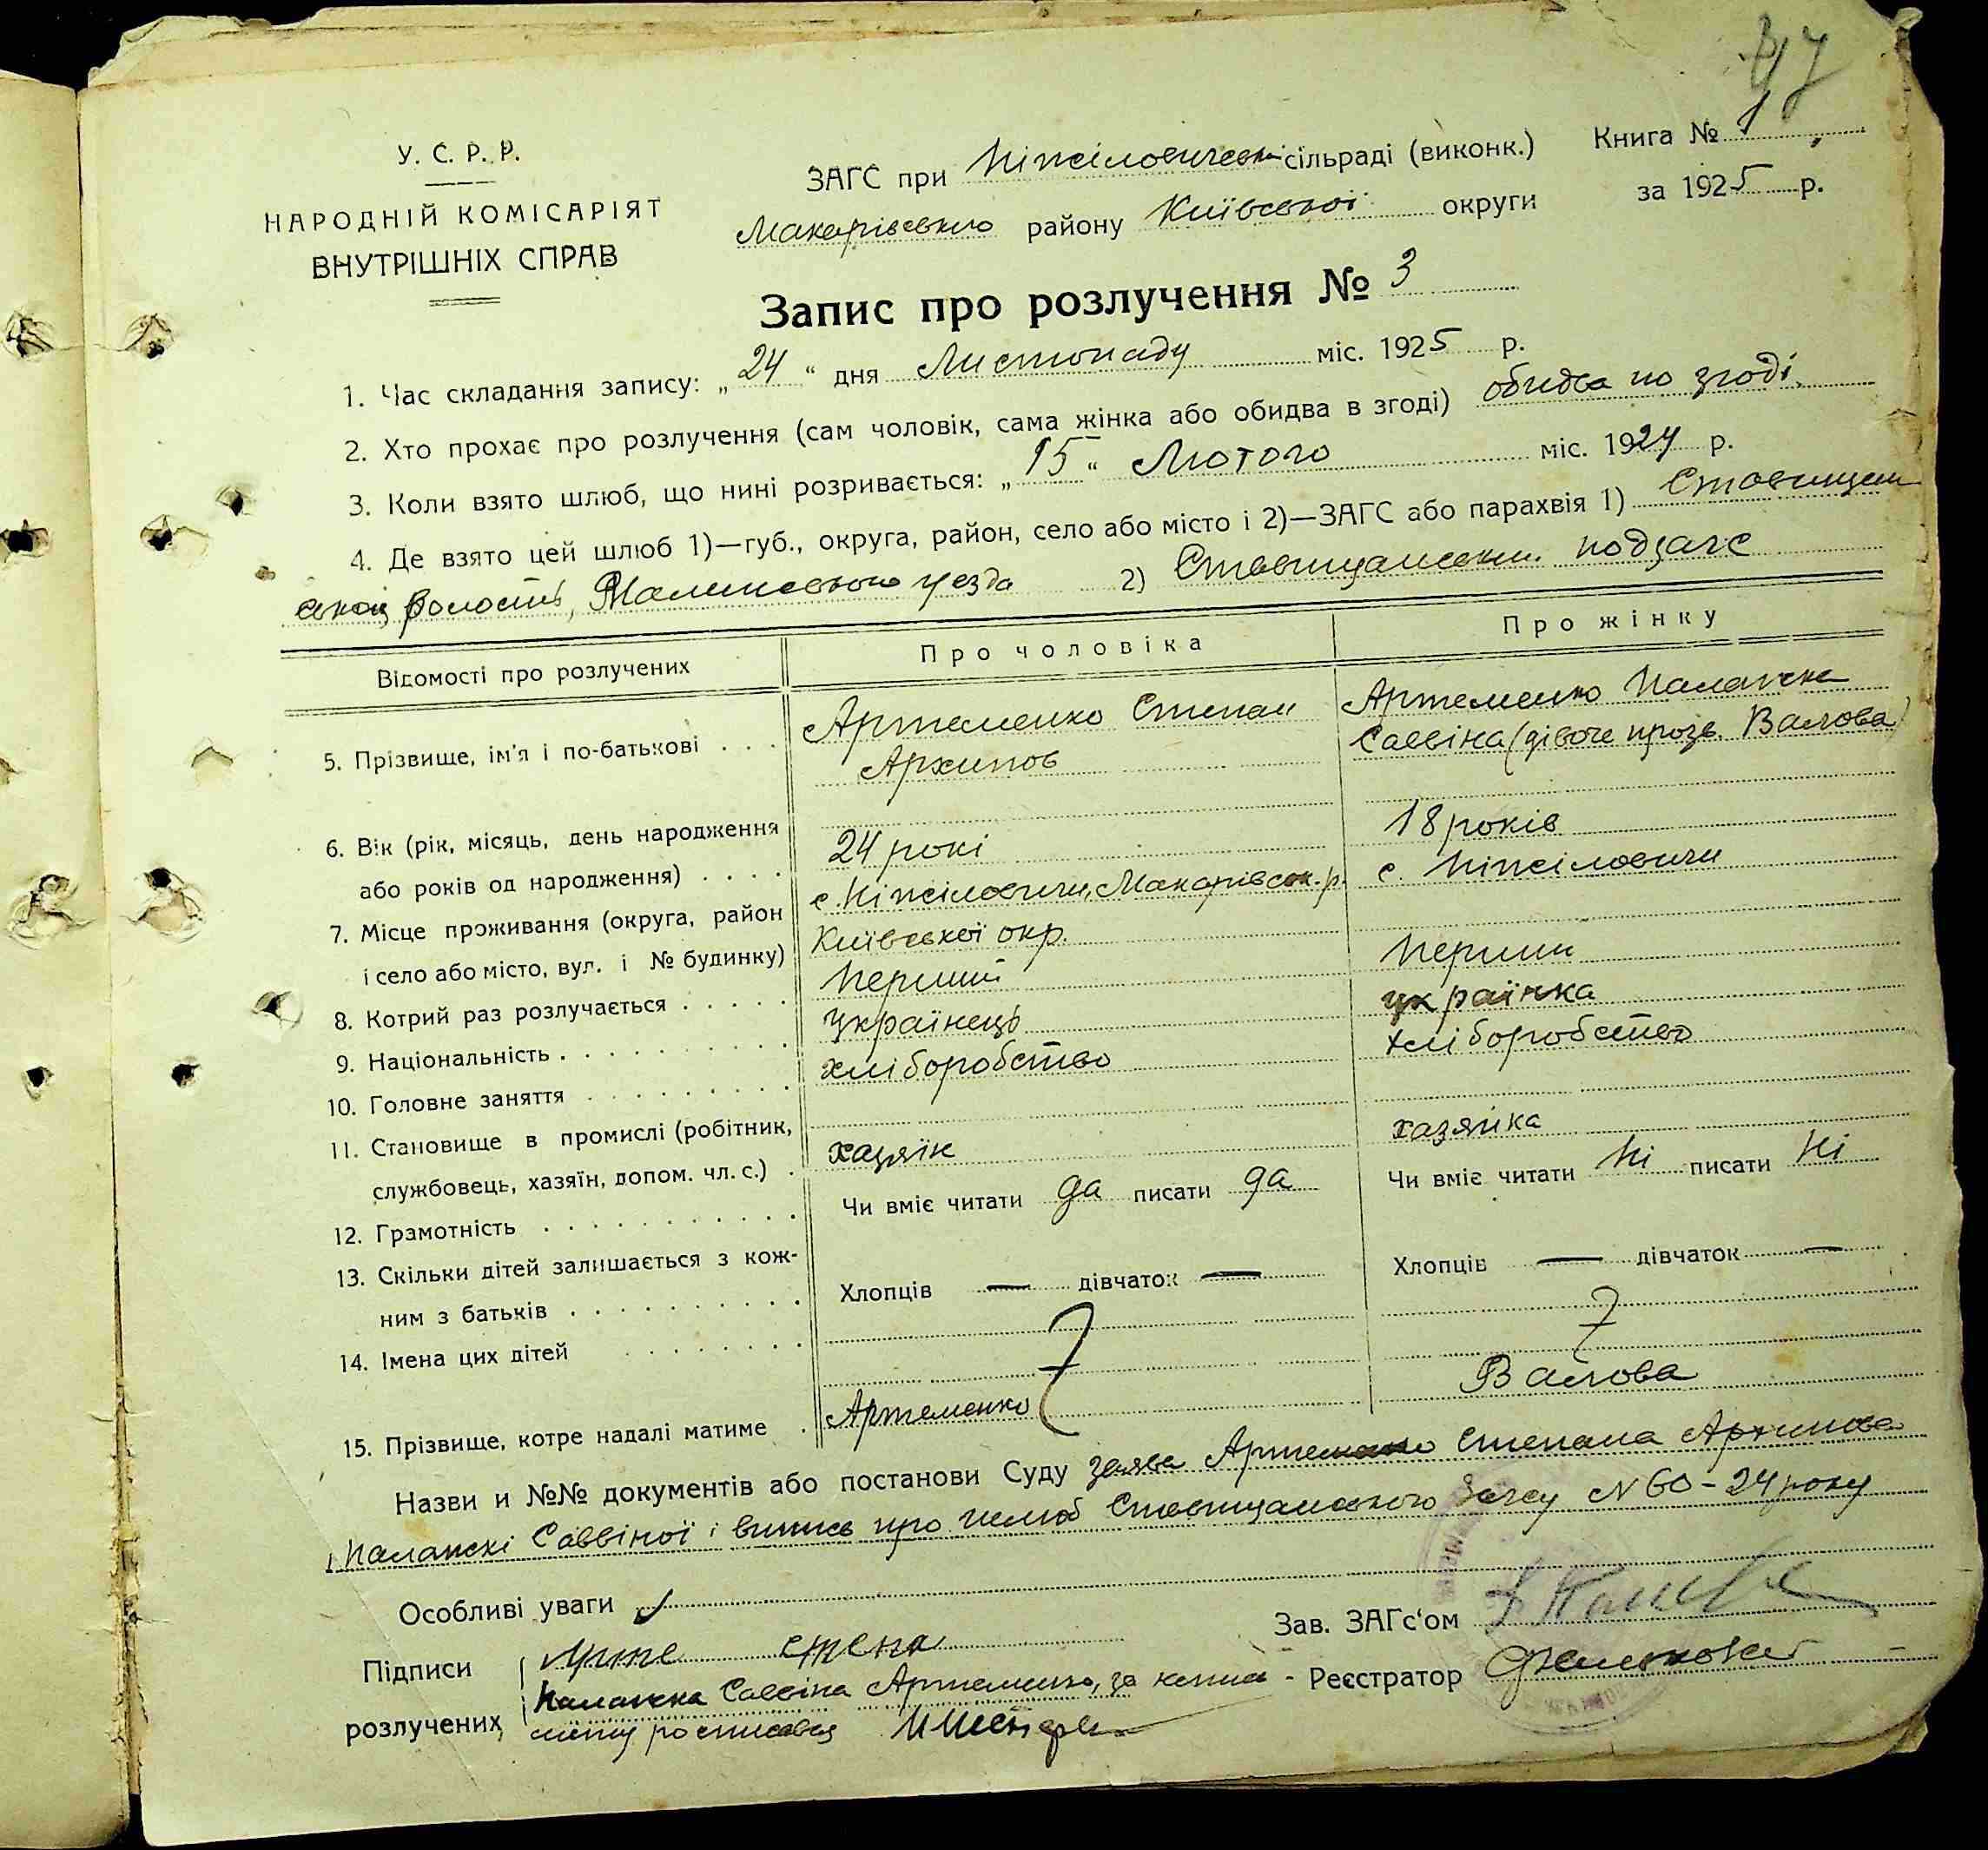 47
У. С. Р. Р.
НАРОДНІЙ КОМІСАРІЯТ
ВНУТРІШНІХ СПРАВ
ЗАГС при Ніжіловичській сільраді (виконк.)
Книга № 1
Макарівського району Київської округи
за 1925 р.
Запис про розлучення № 3
1. Час складання запису: „24“ дня Листопаду міс. 1925 р.
2. Хто прохає про розлучення (сам чоловік, сама жінка або обидва в згоді) обидва по згоді.
3. Коли взято шлюб, що нині розривається: „15“ Лютого міс. 1924 р.
4. Де взято цей шлюб 1)—губ., округа, район, село або місто і 2)—ЗАГС або парахвія 1) Ставищан
ской волости, Малинського уезда 2) Ставищанськи. подзагс
Відомості про розлучених
Про чоловіка
Про жінку
5. Прізвище, ім'я і по-батькові . . .
Артеменко Степан
Архипов
Артеменко Палажка
Саввіна (дівоче прозв. Валова)
6. Вік (рік, місяць, день народження
або років од народження) . . . .
24 рокі
18 років
7. Місце проживання (округа, район
і село або місто, вул. і № будинку)
с. Ніжіловичи, Макарівськ. р.
Київської окр.
с. Ніжіловичи
8. Котрий раз розлучається . . . . .
Перший
Перший
9. Національність . . . . . . . . . .
українець
українка
10. Головне заняття . . . . . . . . .
хліборобство
хліборобство
11. Становище в промислі (робітник,
службовець, хазяїн, допом. чл. с.) .
хазяїн
хазяйка
12. Грамотність . . . . . . . . . . .
Чи вміє читати да писати да
Чи вміє читати Ні писати Ні
13. Скільки дітей залишається з кож-
ним з батьків . . . . . . . . . .
Хлопців — дівчаток —
Хлопців — дівчаток —
14. Імена цих дітей . . . . . . . .
15. Прізвище, котре надалі матиме .
Артеменко
Валова
Назви и №№ документів або постанови Суду заява Артеменко Степана Архипова
і Палажкі Саввіної і выпись про шлюб Ставищанского Загсу N 60 - 24 року
Особливі уваги
Зав. ЗАГс‘ом
Підписи
розлучених
Арте степа
Палажка Саввіна Артеменко, за непись-
менну росписався
Реєстратор